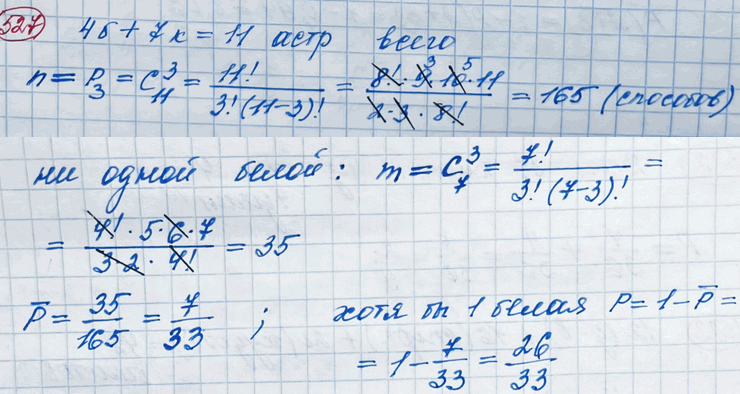 527 4б + 7к = 11 астр всего
n = P₃ = C₁₁³ = 11! / 3!(11-3)! = 8! · 9³ · 10⁵ · 11 / 2 · 3 · 8! = 165 (способов)
ни одной белой: m = C₇³ = 7! / 3!(7-3)! =
= 4! · 5 · 6 · 7 / 3 · 2 · 4! = 35
P̅ = 35/165 = 7/33 ; хотя бы 1 белая P = 1 - P̅ =
= 1 - 7/33 = 26/33